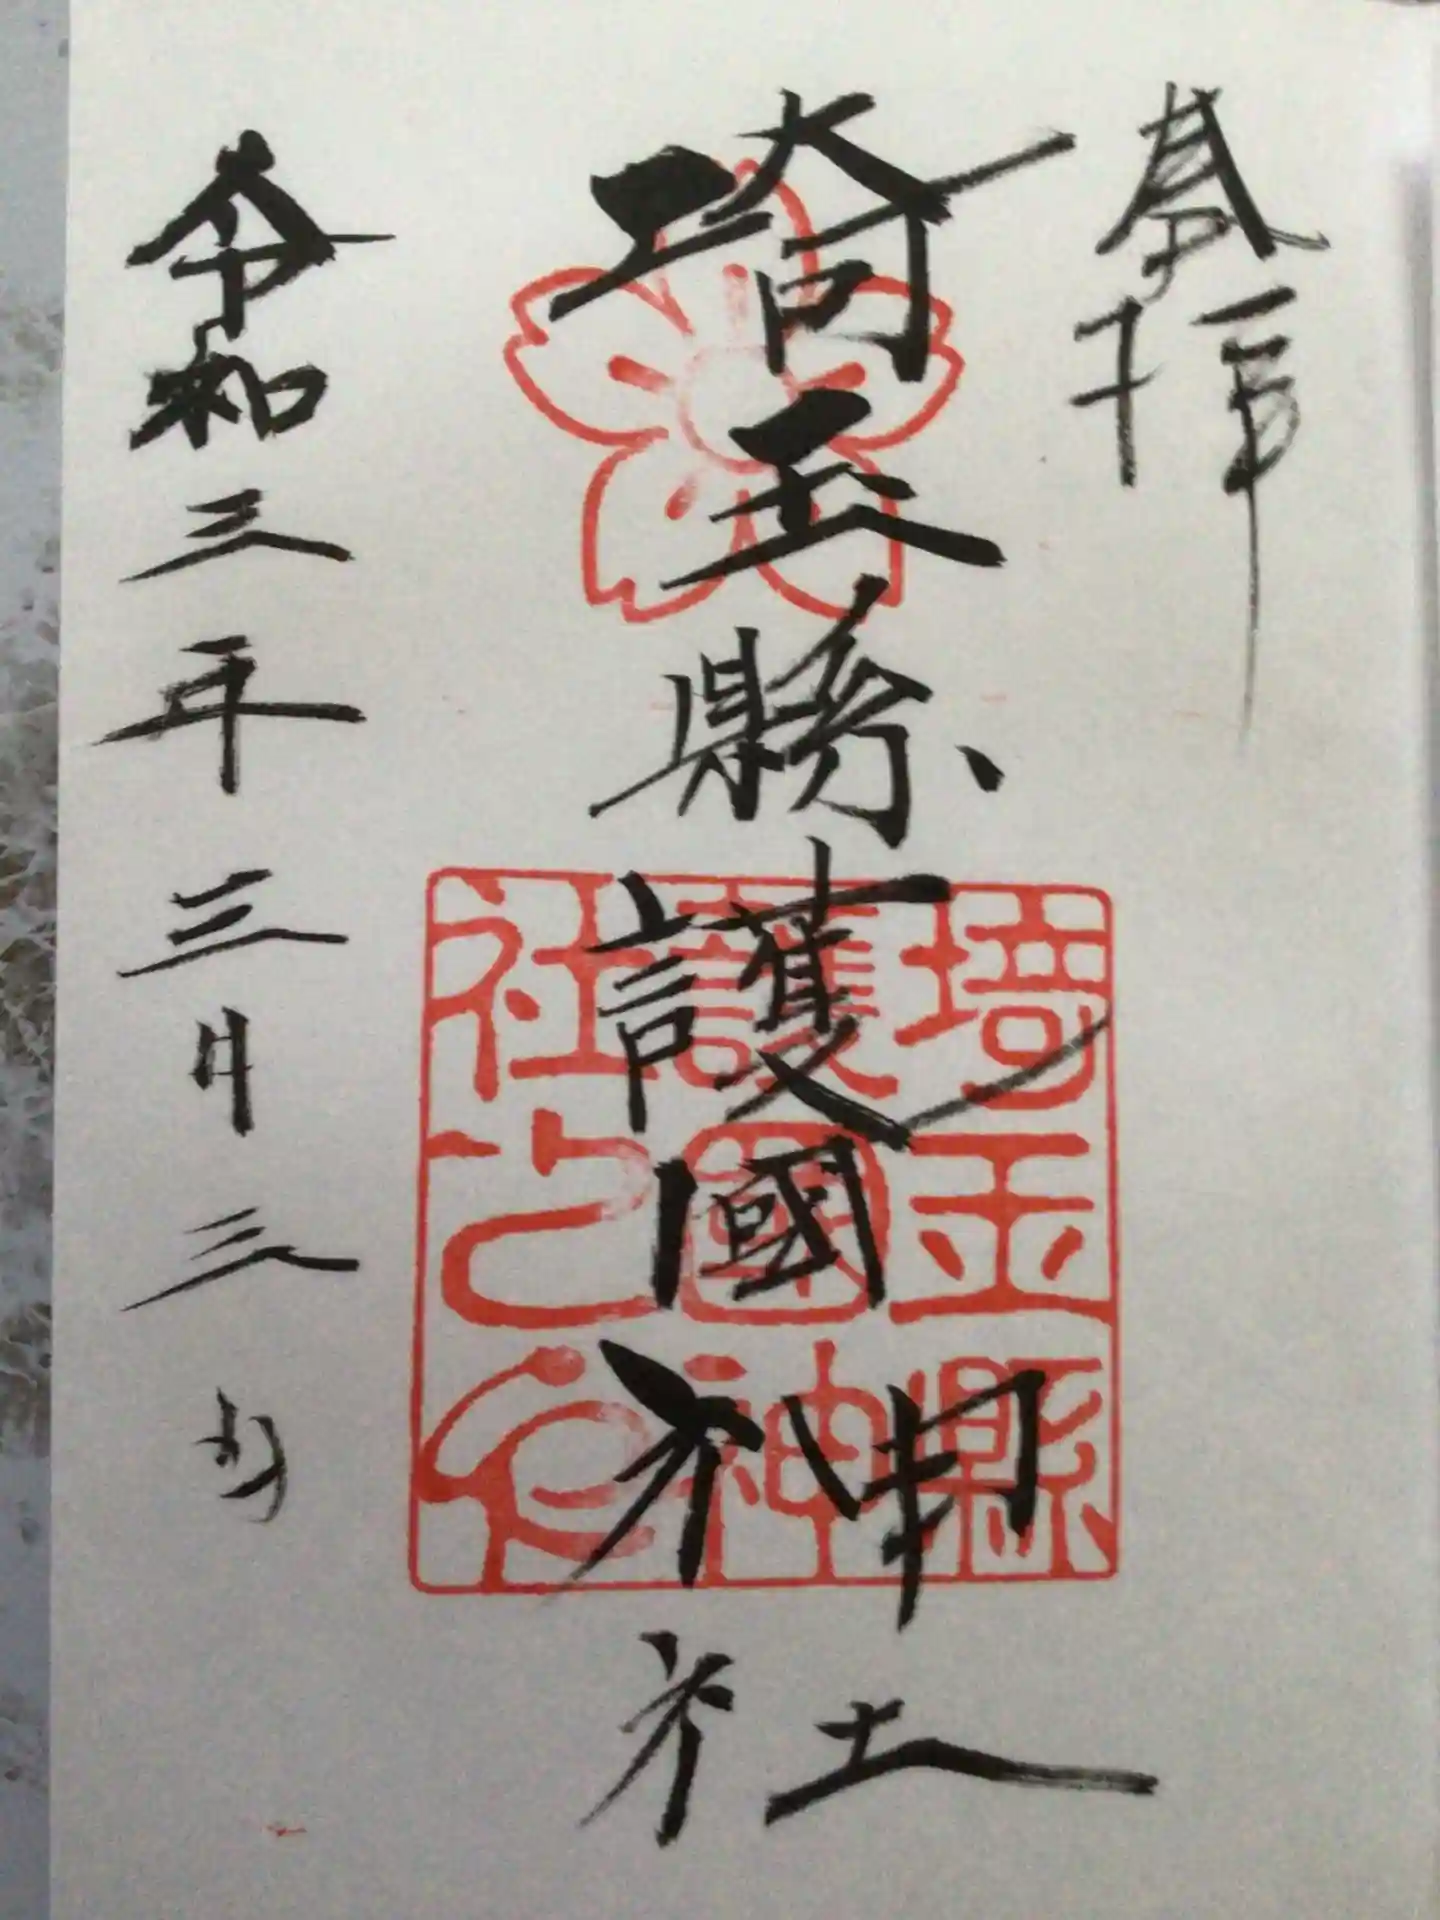 参拝
埼玉縣護國神社
埼玉縣
護國神
社之印
令和三年三月三日